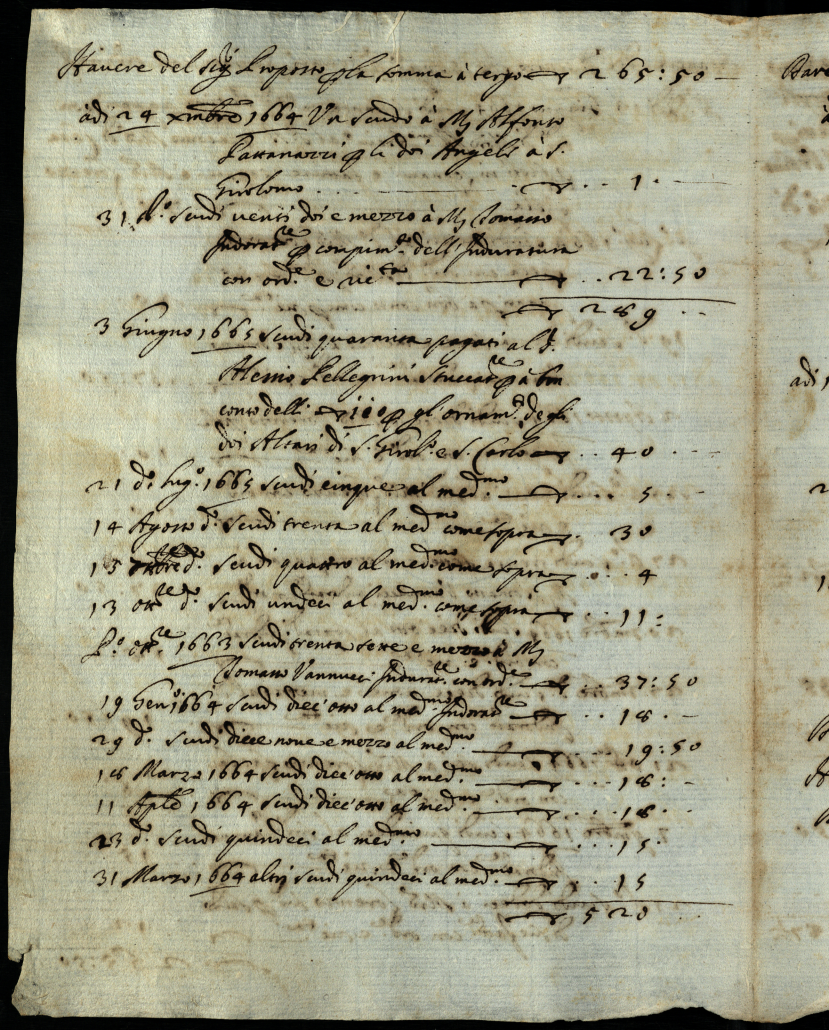 Havere del Sig.r Proposto p la somma à tergo 265:50
àdi 24 xmbre 1664 Un scudo à Mj Alfonso
Pattanazzi p li doi Angeli à S.
Girolomo 1
31 d.o scudi venti doi e mezzo à Mj Tomasso
Indorat.re p compim.to dell'Induratura
con ord.e e ric.ta 22:50
289
3 Giugno 1665 scudi quaranta pagati al S.
Alessio Pellegrini Stuccat.re p à bon
conto delli 110 p gl'ornam.ti degli
doi Altari di S. Girol.o e S. Carlo 40
21 d.o lug.o 1665 scudi cinque al med.mo 5
14 Agosto d.o scudi trenta al med.mo come sopra 30
15 d.o scudi quattro al med.mo come sopra 4
13 ott.re d.o scudi undeci al med.mo come sopra 11:
P.o ott.re 1663 scudi trenta sette e mezzo à Mj
Tomasso Vannucci Indurat.re con ord.e 37:50
19 Gen.o 1664 scudi dieci otto al med.mo Indorat.re 18
29 d.o scudi diece nove e mezzo al med.mo 19:50
18 Marzo 1664 scudi dieci otto al med.mo 18:
11 Aple 1664 scudi dieci otto al med.mo 18
23 d.o scudi quindeci al med.mo 15
31 Marzo 1664 altri scudi quindeci al med.mo 15
520